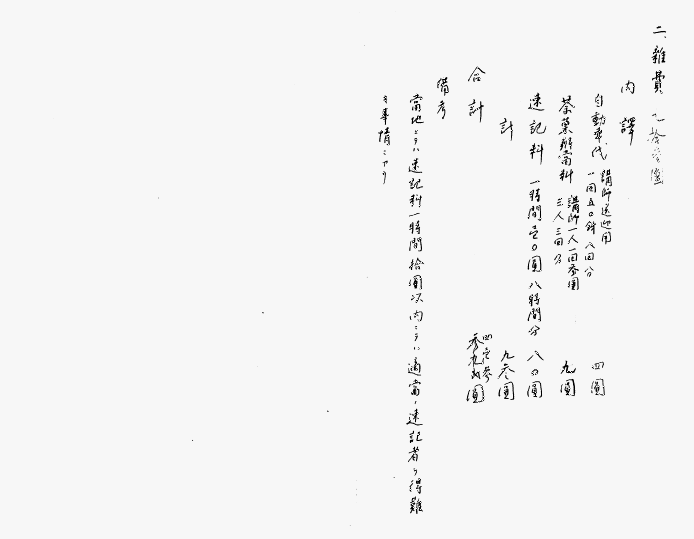 二、雜費 九拾參圓
内譯
自動車代 講師送迎用
一回五〇錢 八回分 四圓
茶菓辨當料 講師一人一回參圓
三人三回分 九圓
速記料 一時間壱〇圓 八時間分 八〇圓
計 九參圓
合計 四壱參
圓
備考
當地ニテハ速記料一時間拾圓以内ニテハ適當ノ速記者ヲ得難
キ事情ニアリ